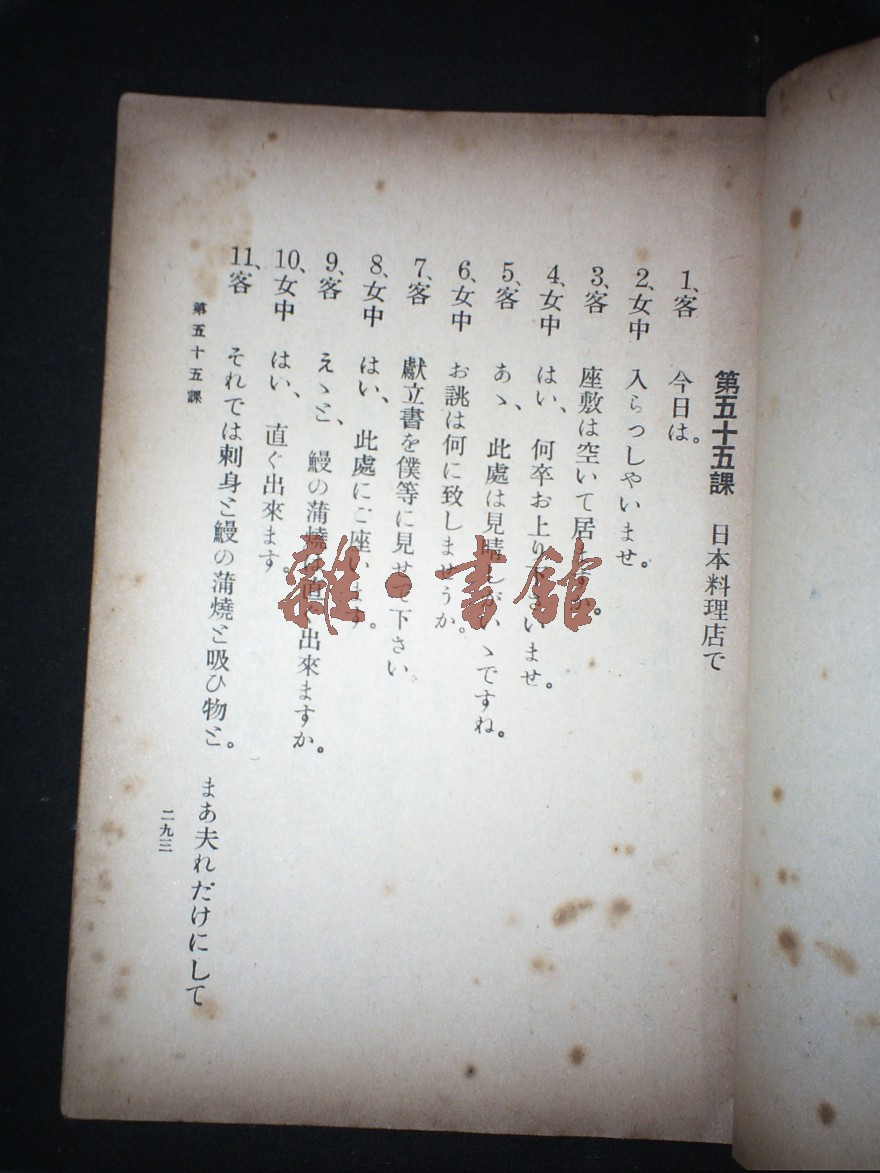 第五十五課 日本料理店で
1、客 今日は。
2、女中 入らつしやいませ。
3、客 座敷は空いて居ますか。
4、女中 はい、何卒お上り下さいませ。
5、客 あゝ、此處は見晴しがいゝですね。
6、女中 お誂は何に致しませうか。
7、客 獻立書を僕等に見せて下さい。
8、女中 はい、此處にご座います。
9、客 えゝと、鰻の蒲燒は直ぐ出來ますか。
10、女中 はい、直ぐ出來ます。
11、客 それでは刺身と鰻の蒲燒と吸ひ物と。 まあ夫れだけにして
第五十五課
二九三
雜·書館